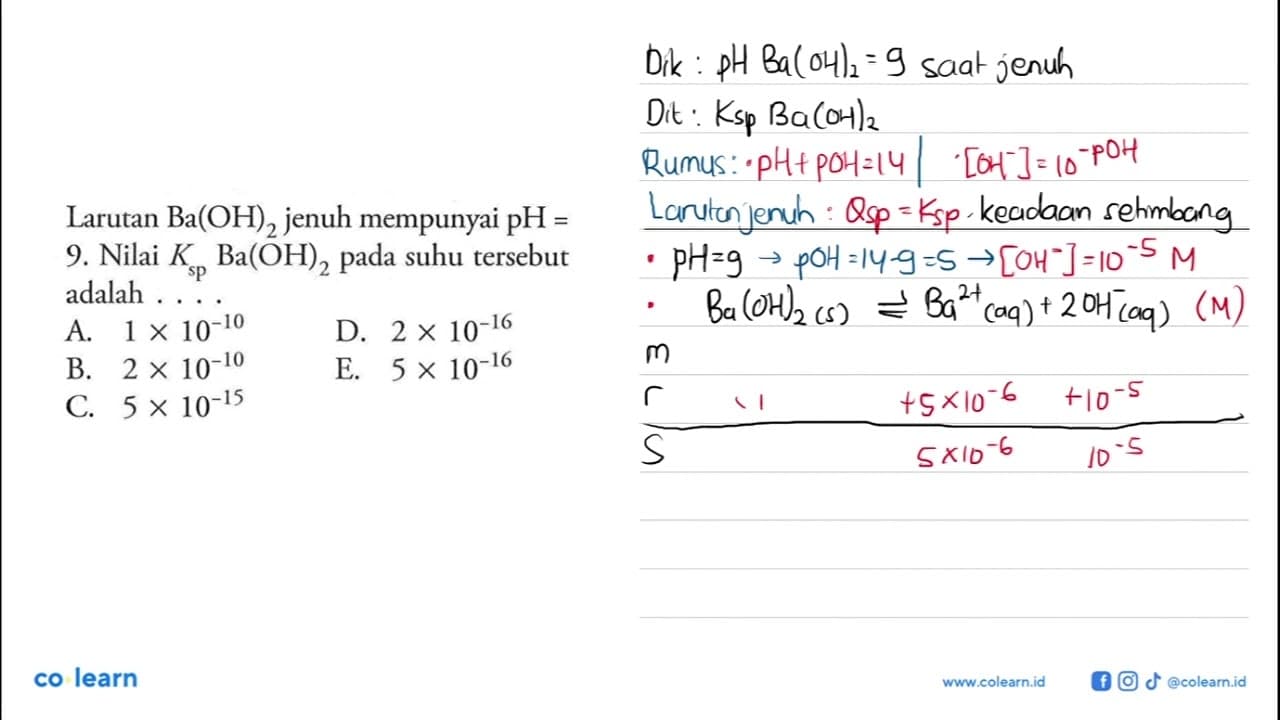 Larutan Ba(OH)₂ jenuh mempunyai pH =
9. Nilai Kₛₚ Ba(OH)₂ pada suhu tersebut
adalah . . . .
A. 1 × 10⁻¹⁰
B. 2 × 10⁻¹⁰
C. 5 × 10⁻¹⁵
D. 2 × 10⁻¹⁶
E. 5 × 10⁻¹⁶
Dik : pH Ba(OH)₂ = 9 saat jenuh
Dit : Ksp Ba(OH)₂
Rumus: • pH + pOH = 14 | • [OH⁻] = 10^-pOH
Larutan jenuh : Qsp = Ksp. keadaan setimbang
• pH = 9 → pOH = 14-9 = 5 → [OH⁻] = 10⁻⁵ M
• Ba(OH)₂ (s) ⇌ Ba²⁺ (aq) + 2 OH⁻ (aq) (M)
m
r +5×10⁻⁶ +10⁻⁵
S 5×10⁻⁶ 10⁻⁵
co learn
www.colearn.id @colearn.id